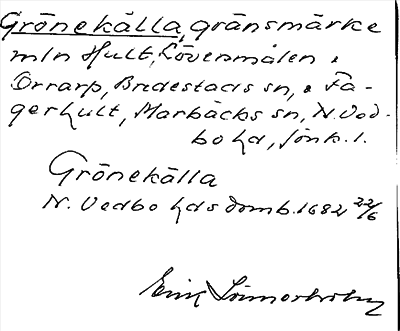 Grönekälla, gränsmärke
mln Hult, Lövenmålen,
Orrarp, Bredestads sn, o Fa-
gerhult, Marbäcks sn, N. Ved-
bo hd, Jönk. l.
Grönekälla
N. Vedbo hds domb. 1682 22/6